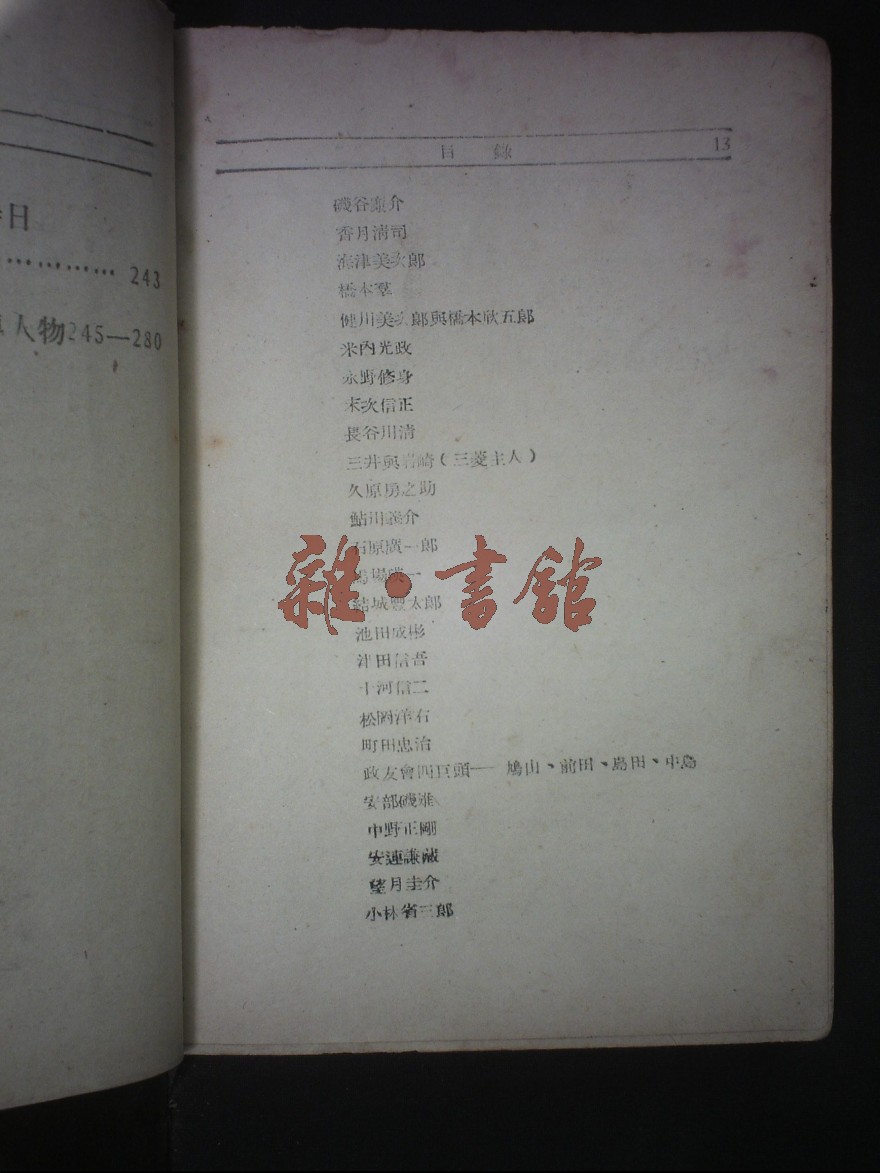 日
…………… 243
人物245—280
目錄 13
磯谷廉介
香月淸司
梅津美次郞
橋本羣
健川美次郞與橋本欣五郞
米內光政
永野修身
末次信正
長谷川淸
三井與岩崎(三菱主人)
久原房之助
鮎川義介
石原廣一郞
馬場鍈一
結城豐太郞
池田成彬
津田信吾
十河信二
松岡洋右
町田忠治
政友會四巨頭— 鳩山、前田、島田、中島
安部磯雄
中野正剛
安達謙藏
望月圭介
小林省三郞
雜·書館